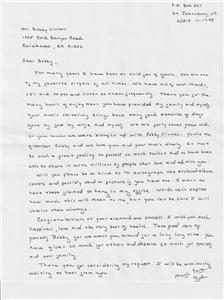 P.O. Box 221
St. Johnsbury, VT
05819
Mr. Bobby Vinton
Calabasas, CA 91302
Dear Bobby,
For many years I have been an avid fan of yours. You are one
of my favorite singers of all times. We have all of your records,
and listen to them frequently. Thank you for the
many hours of enjoyment you have provided my family and myself
your music
gone by for my wife and myself. We are forty years old,
so you know we were brought up with Bobby Vinton. You're the
greatest Bobby and we love you and your music dearly. It must
be such a great feeling to possess so much talent and to have been
able to share it with millions of people that love and admire you.
Will you please be so kind as to autograph the enclosed album
covers and possibly send a picture if you have one. I want to
have these framed to hang in my office. Words can't express
how much this will mean to me, but you can be sure I will
cherish them always.
Congratulations of your
happiness, love and the very best of health. Take good care of
yourself Bobby, for we want you around for a long long time. You
have given so much to others and deserve so much for yourself
and your family.
Thank you for considering my request. I will be anxiously
waiting to hear from you.